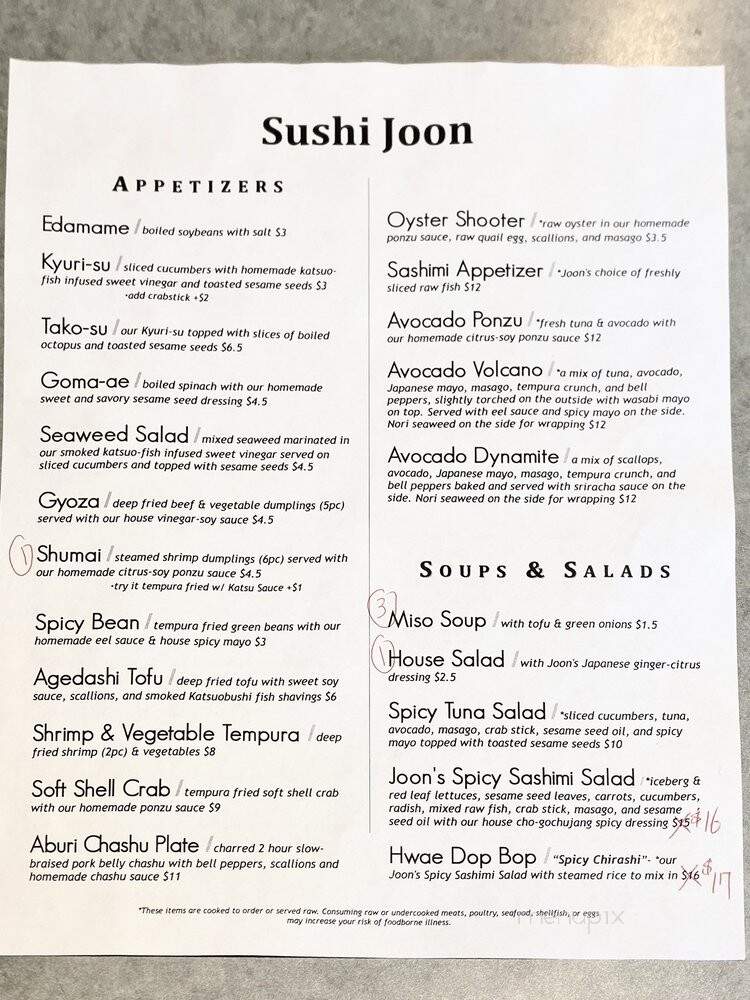 Sushi Joon
APPETIZERS
Edamame / boiled soybeans with salt $3
Kyuri-su / sliced cucumbers with homemade katsuo-
fish infused sweet vinegar and toasted sesame seeds $3
·add crabstick +$2
Tako-su / our Kyuri-su topped with slices of boiled
octopus and toasted sesame seeds $6.5
Goma-ae / boiled spinach with our homemade
sweet and savory sesame seed dressing $4.5
Seaweed Salad / mixed seaweed marinated in
our smoked katsuo-fish infused sweet vinegar served on
sliced cucumbers and topped with sesame seeds $4.5
Gyoza / deep fried beef & vegetable dumplings (5pc)
served with our house vinegar-soy sauce $4.5
① Shumai / steamed shrimp dumplings (6pc) served with
our homemade citrus-soy ponzu sauce $4.5
·try it tempura fried w/ Katsu Sauce +$1
Spicy Bean / tempura fried green beans with our
homemade eel sauce & house spicy mayo $3
Agedashi Tofu / deep fried tofu with sweet soy
sauce, scallions, and smoked Katsuobushi fish shavings $6
Shrimp & Vegetable Tempura / deep
fried shrimp (2pc) & vegetables $8
Soft Shell Crab / tempura fried soft shell crab
with our homemade ponzu sauce $9
Aburi Chashu Plate / charred 2 hour slow-
braised pork belly chashu with bell peppers, scallions and
homemade chashu sauce $11
Oyster Shooter / *raw oyster in our homemade
ponzu sauce, raw quail egg, scallions, and masago $3.5
Sashimi Appetizer / *Joon's choice of freshly
sliced raw fish $12
Avocado Ponzu / *fresh tuna & avocado with
our homemade citrus-soy ponzu sauce $12
Avocado Volcano / *a mix of tuna, avocado,
Japanese mayo, masago, tempura crunch, and bell
peppers, slightly torched on the outside with wasabi mayo
on top. Served with eel sauce and spicy mayo on the side.
Nori seaweed on the side for wrapping $12
Avocado Dynamite / a mix of scallops,
avocado, Japanese mayo, masago, tempura crunch, and
bell peppers baked and served with sriracha sauce on the
side. Nori seaweed on the side for wrapping $12
SOUPS & SALADS
③ Miso Soup / with tofu & green onions $1.5
① House Salad / with Joon's Japanese ginger-citrus
dressing $2.5
Spicy Tuna Salad / *sliced cucumbers, tuna,
avocado, masago, crab stick, sesame seed oil, and spicy
mayo topped with toasted sesame seeds $10
Joon's Spicy Sashimi Salad / *iceberg &
red leaf lettuces, sesame seed leaves, carrots, cucumbers,
radish, mixed raw fish, crab stick, masago, and sesame
seed oil with our house cho-gochujang spicy dressing $15 $16
Hwae Dop Bop / "Spicy Chirashi"- *our
Joon's Spicy Sashimi Salad with steamed rice to mix in $16 $17
*These items are cooked to order or served raw. Consuming raw or undercooked meats, poultry, seafood, shellfish, or eggs
may increase your risk of foodborne illness.
menupix